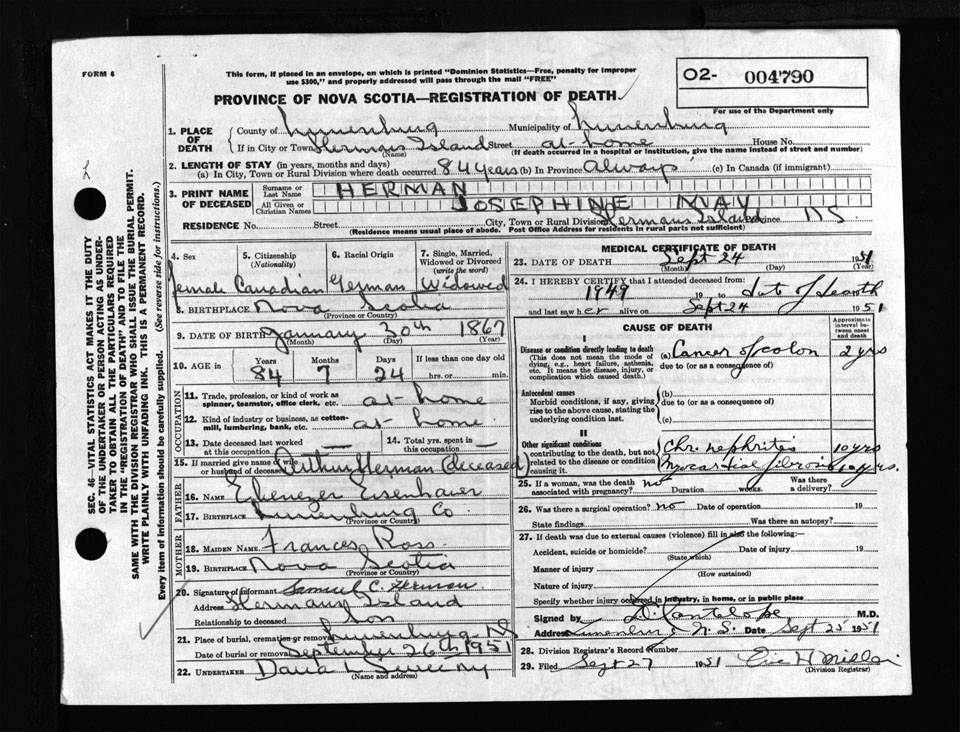 FORM 6
This form, if placed in an envelope, on which is printed "Dominion Statistics—Free, penalty for improper
use $300," and properly addressed will pass through the mail "FREE"
O2- 004790
For use of the Department only
PROVINCE OF NOVA SCOTIA—REGISTRATION OF DEATH
1. PLACE OF DEATH County of Lunenburg Municipality of Lunenburg
If in City or Town Hermans Island Street at home House No.
(Name) (If death occurred in a hospital or institution, give the name instead of street and number)
2. LENGTH OF STAY (in years, months and days)
(a) In City, Town or Rural Division where death occurred 84 years (b) In Province Always (c) In Canada (if immigrant)
3. PRINT NAME OF DECEASED Surname or Last Name HERMAN
All Given or Christian Names JOSEPHINE MAY
RESIDENCE No. Street City, Town or Rural Division Hermans Island Province NS
(Residence means usual place of abode. Post Office Address for residents in rural parts not sufficient)
4. Sex 5. Citizenship (Nationality) 6. Racial Origin 7. Single, Married, Widowed or Divorced (write the word)
Female Canadian German Widowed
8. BIRTHPLACE Nova Scotia
(Province or Country)
9. DATE OF BIRTH January 30th 1867
(Month) (Day) (Year)
10. AGE in Years Months Days If less than one day old
84 7 24 hrs. or min.
OCCUPATION
11. Trade, profession, or kind of work as spinner, teamster, office clerk, etc. at home
12. Kind of industry or business, as cotton-mill, lumbering, bank, etc. at home
13. Date deceased last worked at this occupation — 14. Total yrs. spent in this occupation —
15. If married give name of wife or husband of deceased Arthur Herman (deceased)
FATHER
16. NAME Ebenezer Eisenhauer
17. BIRTHPLACE Lunenburg Co
(Province or Country)
MOTHER
18. MAIDEN NAME Frances Ross
19. BIRTHPLACE Nova Scotia
(Province or Country)
20. Signature of informant Samuel C. Herman
Address Hermans Island
Relationship to deceased Son
21. Place of burial, cremation or removal Lunenburg N.S
Date of burial or removal September 26th 1951
22. UNDERTAKER Sweeny
(Name and address)
MEDICAL CERTIFICATE OF DEATH
23. DATE OF DEATH Sept 24 1951
(Month) (Day) (Year)
24. I HEREBY CERTIFY that I attended deceased from:
1949 19 to date of death
and last saw her alive on Sept 24 1951
CAUSE OF DEATH
Approximate interval between onset and death
I
Disease or condition directly leading to death (a) Cancer of colon 2 yrs
(This does not mean the mode of dying, e.g., heart failure, asthenia, etc. It means the disease, injury, or complication which caused death.) due to (or as a consequence of)
Antecedent causes (b)
Morbid conditions, if any, giving rise to the above cause, stating the underlying condition last. due to (or as a consequence of)
(c)
II
Other significant conditions contributing to the death, but not related to the disease or condition causing it. Chr. nephritis 10 yrs
Myocardial fibrosis 10 yrs.
25. If a woman, was the death associated with pregnancy? no Duration weeks. Was there a delivery?
26. Was there a surgical operation? no Date of operation 19
State findings Was there an autopsy?
27. If death was due to external causes (violence) fill in also the following:—
Accident, suicide or homicide? Date of injury 19
(State which)
Manner of injury
(How sustained)
Nature of injury
Specify whether injury occurred in industry, in home, or in public place
Signed by Cantelope M.D.
Address Lunenburg N.S. Date Sept 25 1951
28. Division Registrar's Record Number
29. Filed Sept 27 1951 Eric H
(Division Registrar)
SEC. 46—VITAL STATISTICS ACT MAKES IT THE DUTY
OF THE UNDERTAKER OR PERSON ACTING AS UNDER-
TAKER TO OBTAIN ALL THE PARTICULARS REQUIRED
IN THE "REGISTRATION OF DEATH" AND TO FILE THE
SAME WITH THE DIVISION REGISTRAR WHO SHALL ISSUE THE BURIAL PERMIT.
WRITE PLAINLY WITH UNFADING INK. THIS IS A PERMANENT RECORD.
Every item of information should be carefully supplied. (See reverse side for instructions.)